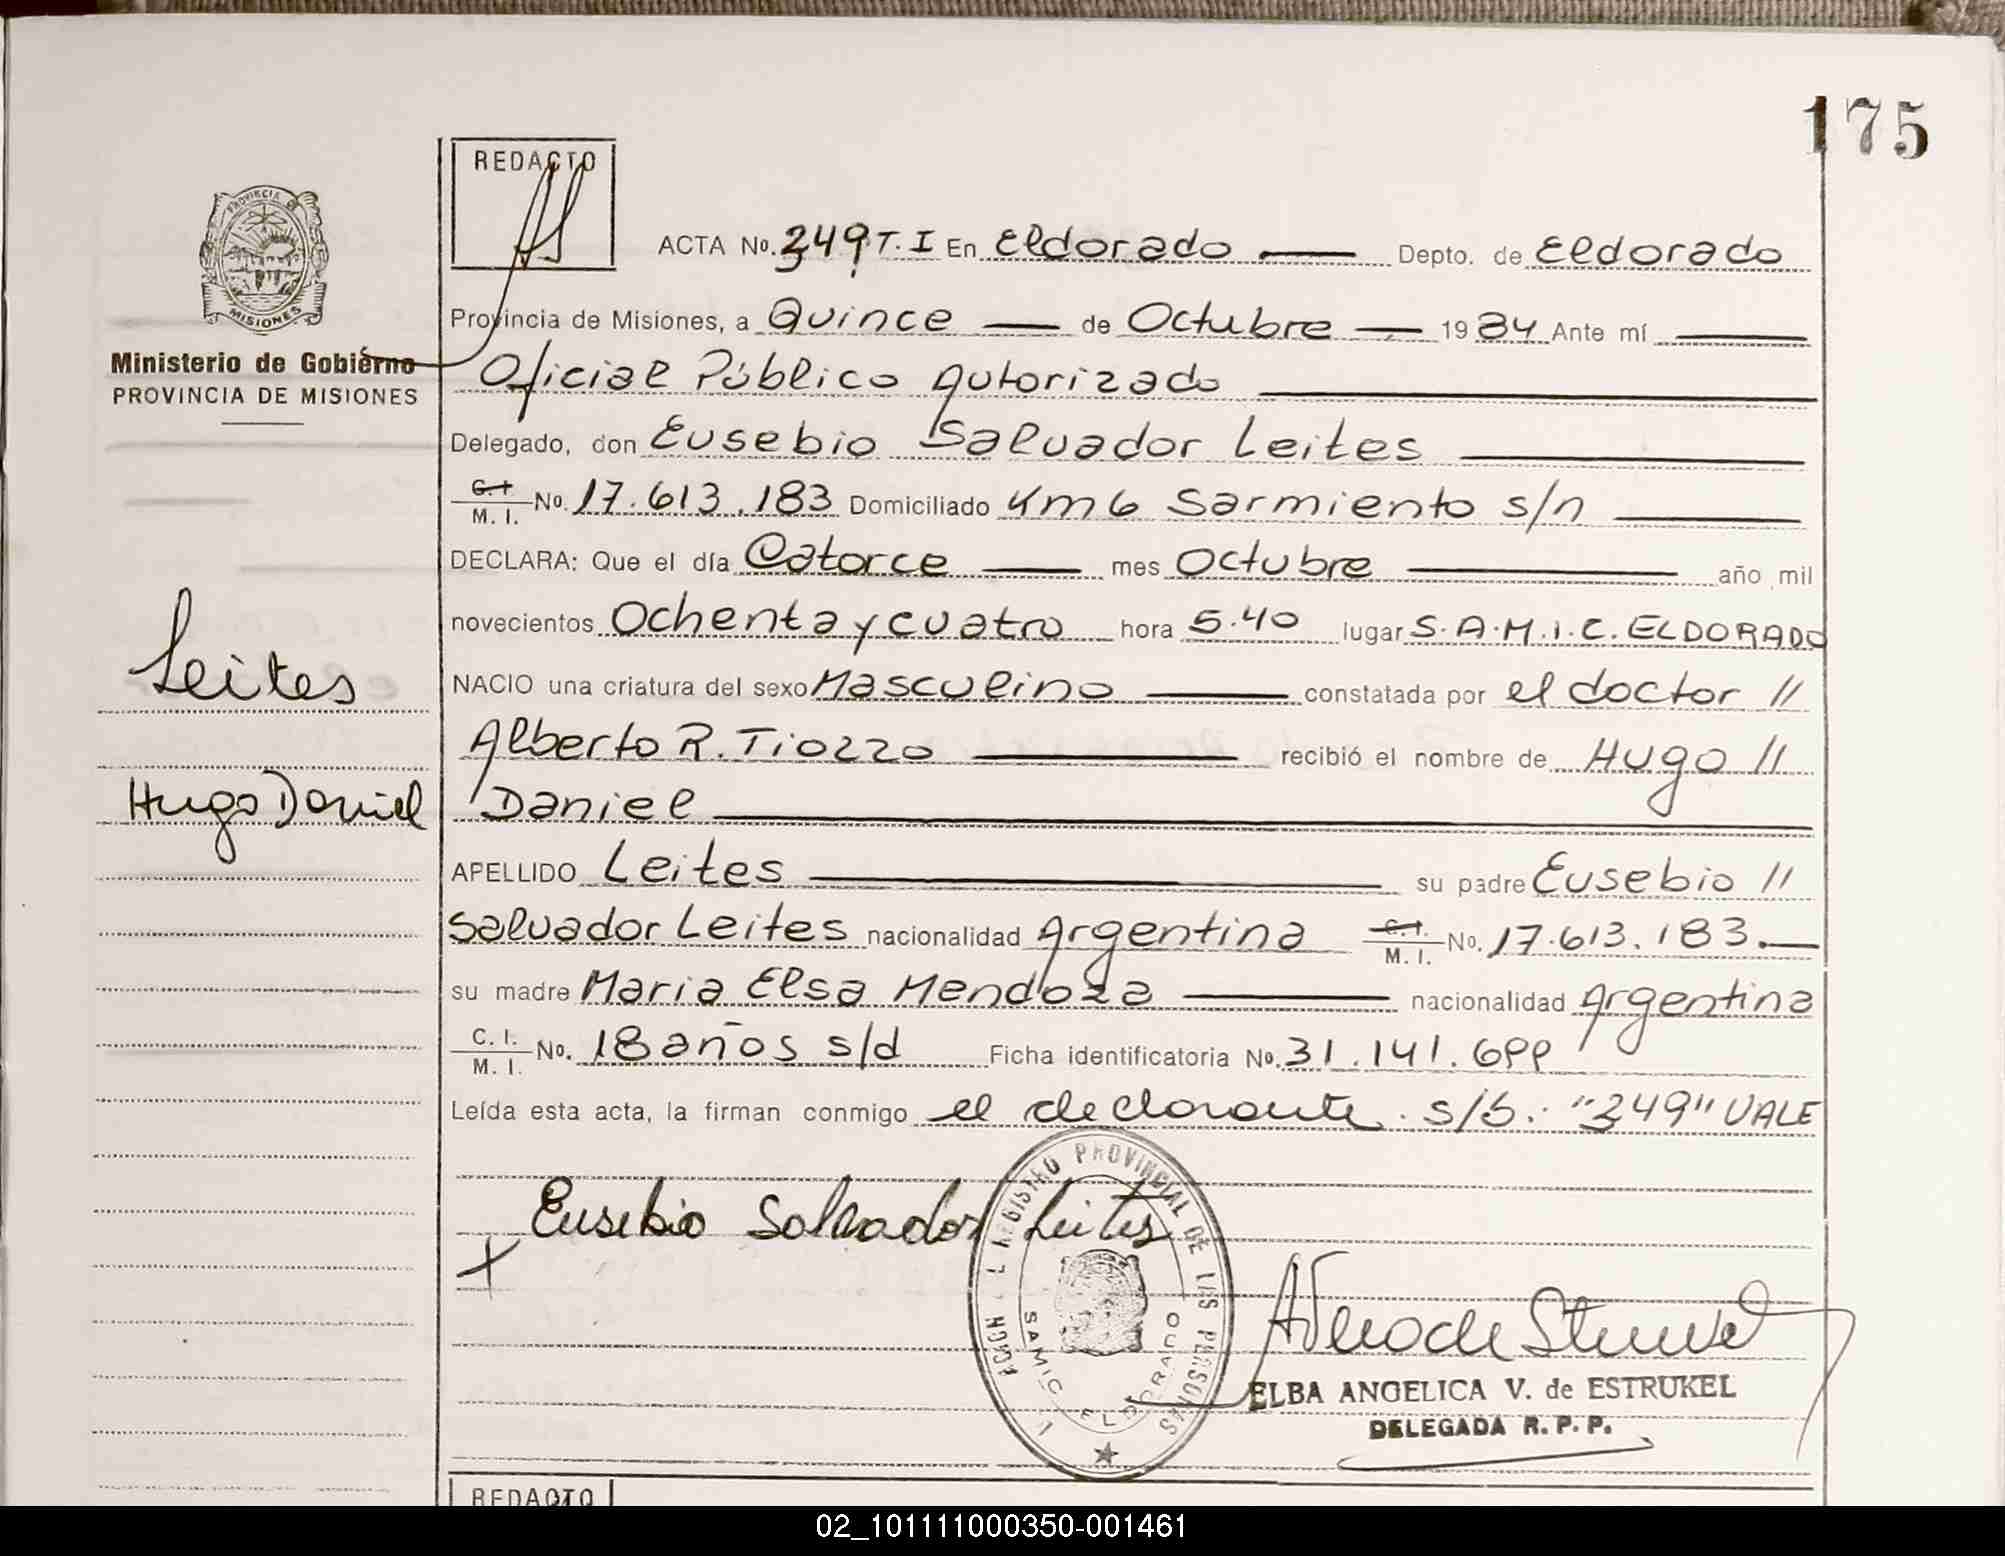 175
REDACTO
PROVINCIA DE
MISIONES
ACTA No. 349 T. I En Eldorado Depto. de Eldorado
Provincia de Misiones, a Quince de Octubre 1984 Ante mí
Ministerio de Gobierno
PROVINCIA DE MISIONES
Oficial Público Autorizado
Delegado, don Eusebio Salvador Leites
C. I. M. I. No. 17.613.183 Domiciliado Km 6 Sarmiento s/n
DECLARA: Que el día Catorce mes Octubre año mil
novecientos Ochenta y cuatro hora 5.40 lugar S.A.M.I.C. ELDORADO
Leites
NACIO una criatura del sexo Masculino constatada por el doctor //
Alberto R. Tiozzo recibió el nombre de Hugo //
Hugo Daniel
Daniel
APELLIDO Leites su padre Eusebio //
Salvador Leites nacionalidad Argentina C. I. M. I. No. 17.613.183.
su madre Maria Elsa Mendoza nacionalidad Argentina
C. I. M. I. No. 18 años s/d Ficha identificatoria No. 31.141.699
Leída esta acta, la firman conmigo el declarante. s/b: "349" VALE
Eusebio Salvador Leites
REGISTRO PROVINCIAL DE LAS PERSONAS
SAMIC ELDORADO
ELBA ANGELICA V. de ESTRUKEL
DELEGADA R. P. P.
REDACTO
02_101111000350-001461